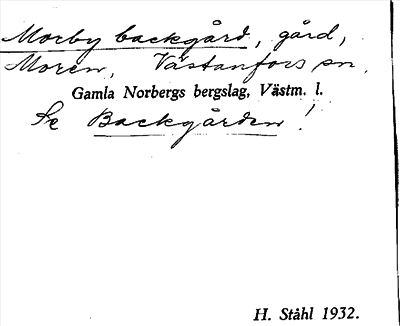 Morby backgård, gård,
Moren, Västanfors sn,
Gamla Norbergs bergslag, Västm. l.
Se Backgården!
H. Ståhl 1932.